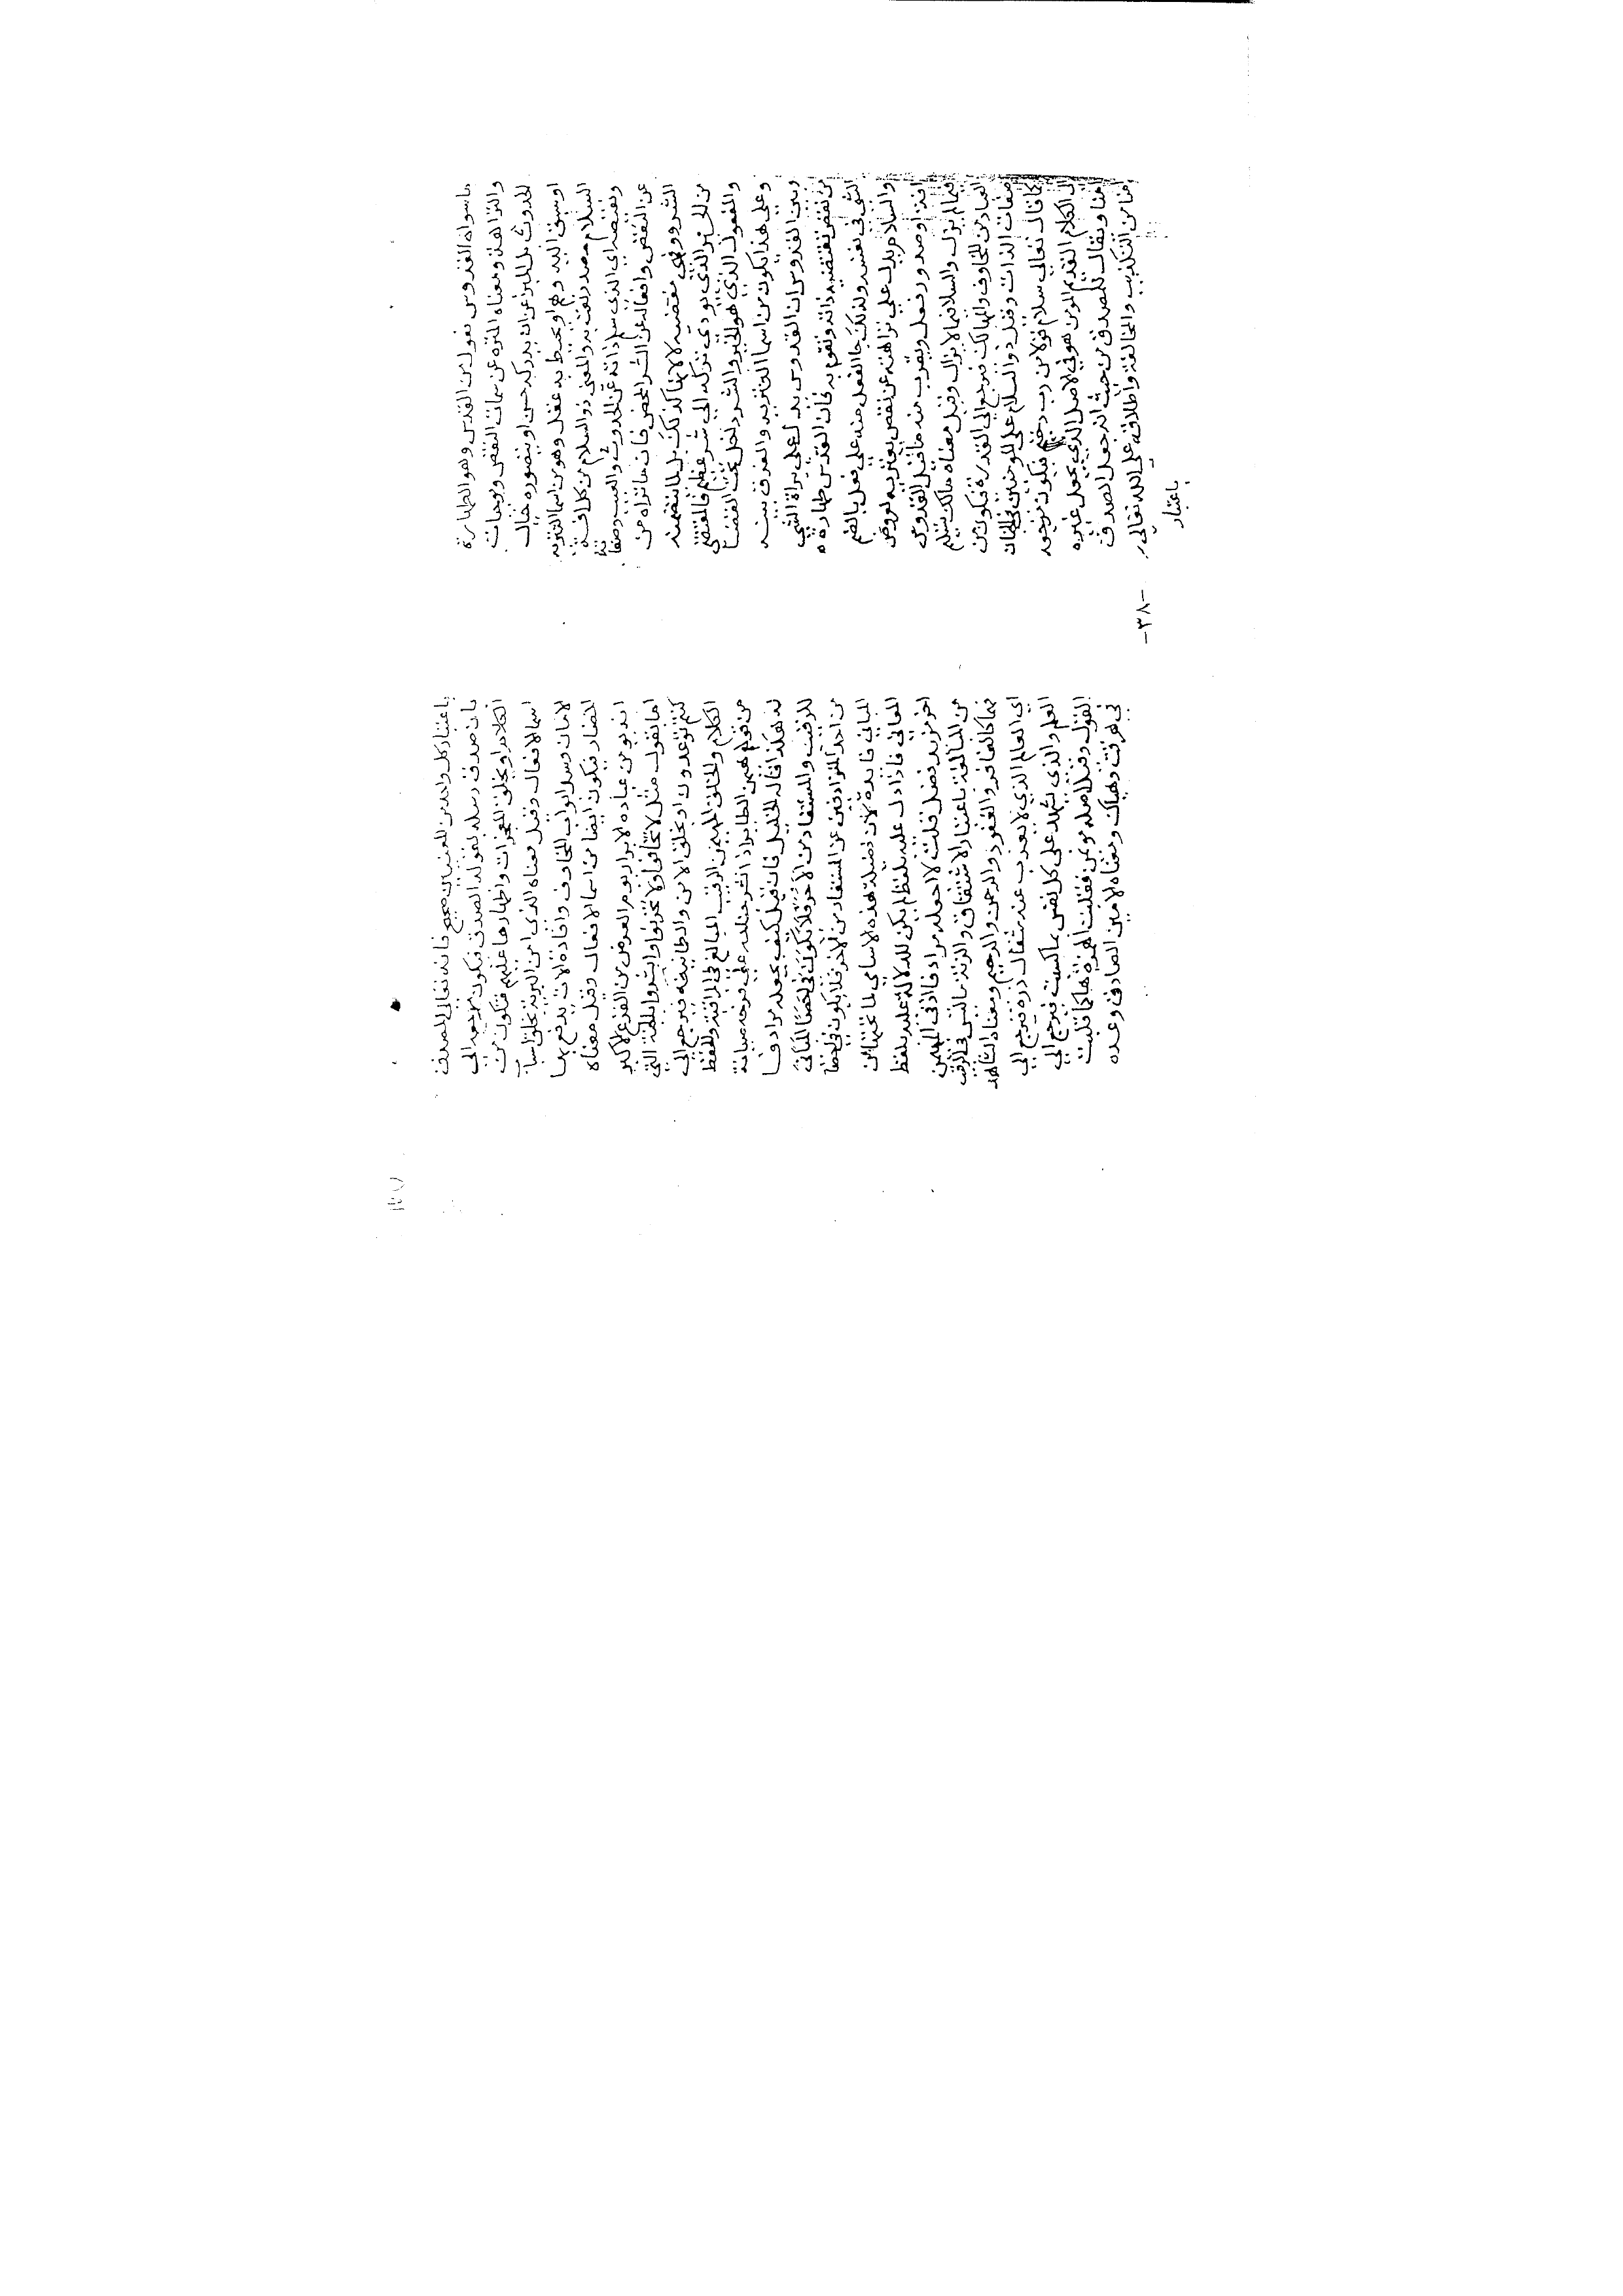 ما سواه القدوس فعول من القدس وهو الطهارة
والنزاهة ومعناه المنزه عن سمات النقص وموجبات
الحدوث بل المبرأ عن ان يدركه حس او يتصوره خيال
او يسبق اليه وهم او يحيط به عقل وهو من اسما التنزيه
السلام مصدر نعت به والمعنى ذو السلام من كل افة
ونقيصة اي الذي سلم ذاته عن الحدوث والعيب وصفاته
عن النقص وافعاله عن الشر المحض فان ما تراه من
الشرور فهي مقضية لا لانها كذلك بل لما يتضمنه
من الخير الذي يودي تركه الى شر عظيم فالمقتضى
والمفعول الذي هو الخير والشر دخل تحت القضا
وعلى هذا يكون من اسما التنزيه والفرق بينه
وبين القدوس ان القدوس يدل على براة الشي
من نقص تقتضيه ذاته وتقوم به فان القدس طهارة
الشي في نفسه ولذلك جا الفعل منه على فعل بالضم
والسلام يدل على نزاهته عن نقص يعتريه لعروض
افة او صدور فعل ويقرب منه ما قيل القدوس
فيما لم يزل والسلام فيما لا يزال وقيل معناه مالك تسليم
العباد من المخاوف والمهالك فيرجع الى القدرة فيكون من
صفات الذات وقيل ذو السلام على المومنين في الجنان
كما قال تعالى سلام قولا من رب رحيم فيكون مرجعه
الى الكلام القديم المومن هو في الاصل الذي يجعل غيره
امنا ويقال للمصدق من حيث انه جعل الصدق
امنا من التكذيب والمخالفة واطلاقه على الله تعالى
باعتبار
-٣٨-
باعتبار كل واحد من المعنيين صحيح فانه تعالى المصدق
بان صدق رسله بقوله الصدق فيكون مرجعه الى
الكلام او بخلق المعجزات واظهارها عليهم فيكون من
اسما الافعال وقيل معناه الذي امن البرية بخلق اسباب
الامان وسد ابواب المخاوف وافادة الات يدفع بها
المضار فيكون ايضا من اسما الافعال وقيل معناه
انه يومن عباده الابرار يوم العرض من الفزع الاكبر
اما بقول مثل لا تخافوا ولا تحزنوا وابشروا بالجنة التي
كنتم توعدون او بخلق الامن والطمانينة فيرجع الى
الكلام والخلق المهيمن الرقيب المبالغ في المراقبة والحفظ
من قولهم هيمن الطاير اذا نشر جناحه على فرخه صيانة
له هكذا قاله الخليل فان قيل كيف يجعله مرادفا
للرقيب والمستفاد من الاخر فلا يكون في احصا المائة
من احد المترادفين عن المستفاد من الاخر فلا يكون في احصا
المباني فايدة لان فضيلة هذه الاسامي لما تحتها من
المعاني فاذا دل عليه بلفظ لم يكن للدلالة عليه بلفظ
اخر مزيد فضل قلت لا اجعله مرادفا اذ في المهيمن
من المبالغة باعتبار الاشتقاق والزنة ما ليس في الرقيب
فهما كالغافر والغفور والرحمن والرحيم ومعناه الشاهد
اي العالم الذي لا يعزب عنه مثقال ذرة فيرجع الى
العلم والذي يشهد على كل نفس بما كسبت فيرجع الى
القول وقيل اصله مويمن فقلبت الهمزة هاء كما قلبت
في هرقت وهياك ومعناه الامين الصادق وعده